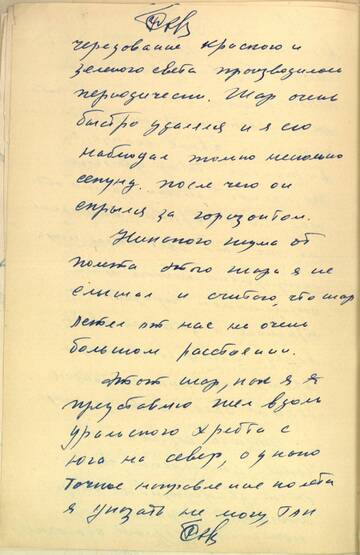 чередование красного и
зеленого света производилось
периодически. Шар очень
быстро удалялся и я его
наблюдал только несколько
секунд, после чего он
скрылся за горизонтом.
Никакого шума от
полета этого шара я не
слышал и считаю, что шар
летел от нас на очень
большом расстоянии.
Этот шар, как я
представляю шел вдоль
уральского хребта с
юга на север, однако
точное направление полета
я указать не могу, так